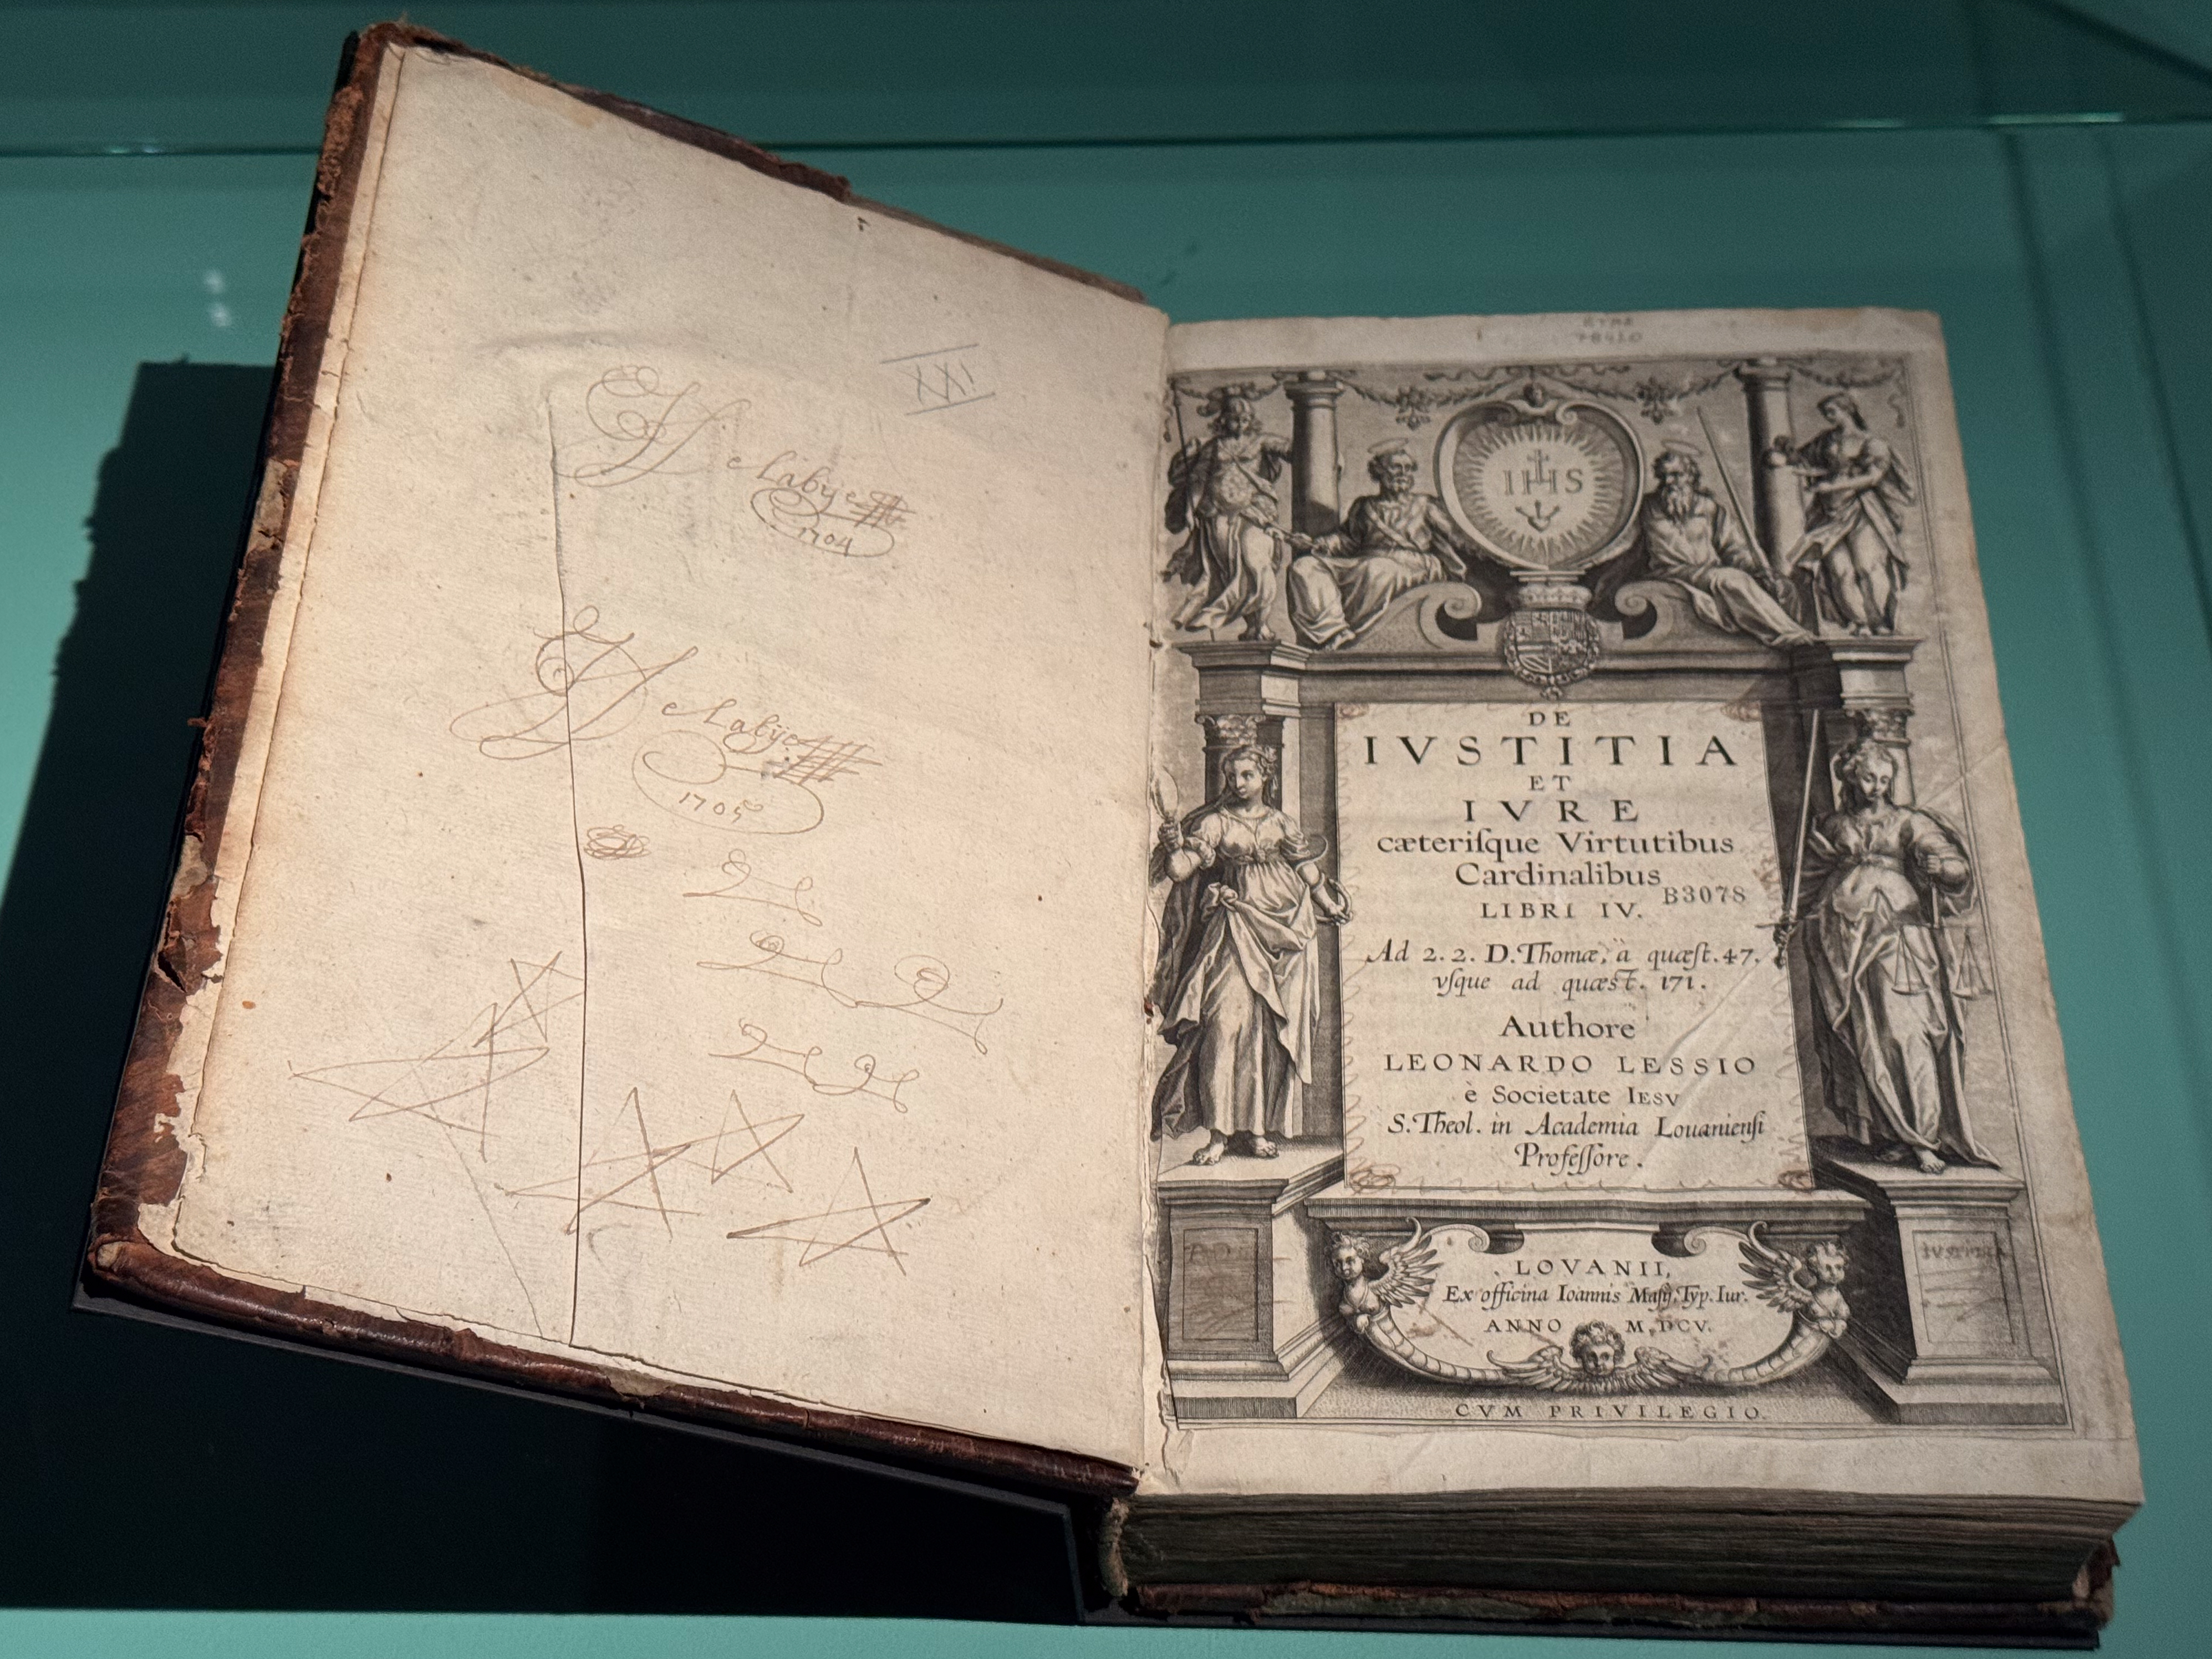 XXI
Delabije
1704
Delabÿe
1705
IHS
DE
IVSTITIA
ET
IVRE
cæteriſque Virtutibus
Cardinalibus
B3078
LIBRI IV.
Ad 2.2. D. Thomæ, à quæſt. 47.
vſque ad quæst. 171.
Authore
LEONARDO LESSIO
è Societate IESV
S. Theol. in Academia Louanienſi
Profeſſore.
IVSTITIA
LOVANII,
Ex officina Ioannis Maſij, Typ. Iur.
ANNO M, DCV.
CVM PRIVILEGIO.